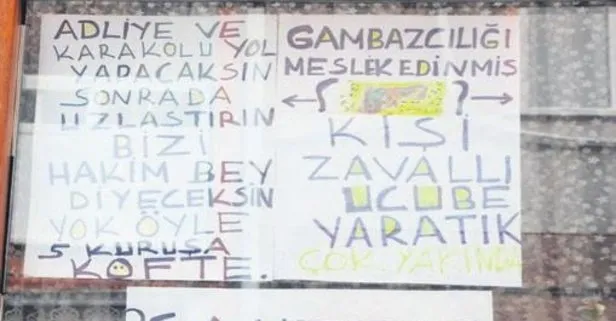 ADLİYE VE
KARAKOLU YOL
YAPACAKSIN
SONRADA
UZLASTIRIN
BİZİ
HAKİM BEY
DİYECEKSİN
YOK ÖYLE
5 KURUŞA
KÖFTE.
GAMBAZCILIĞI
MESLEK EDİNMİŞ
KİŞİ
ZAVALLI
UCUBE
YARATIK
ÇOK YAKINDA